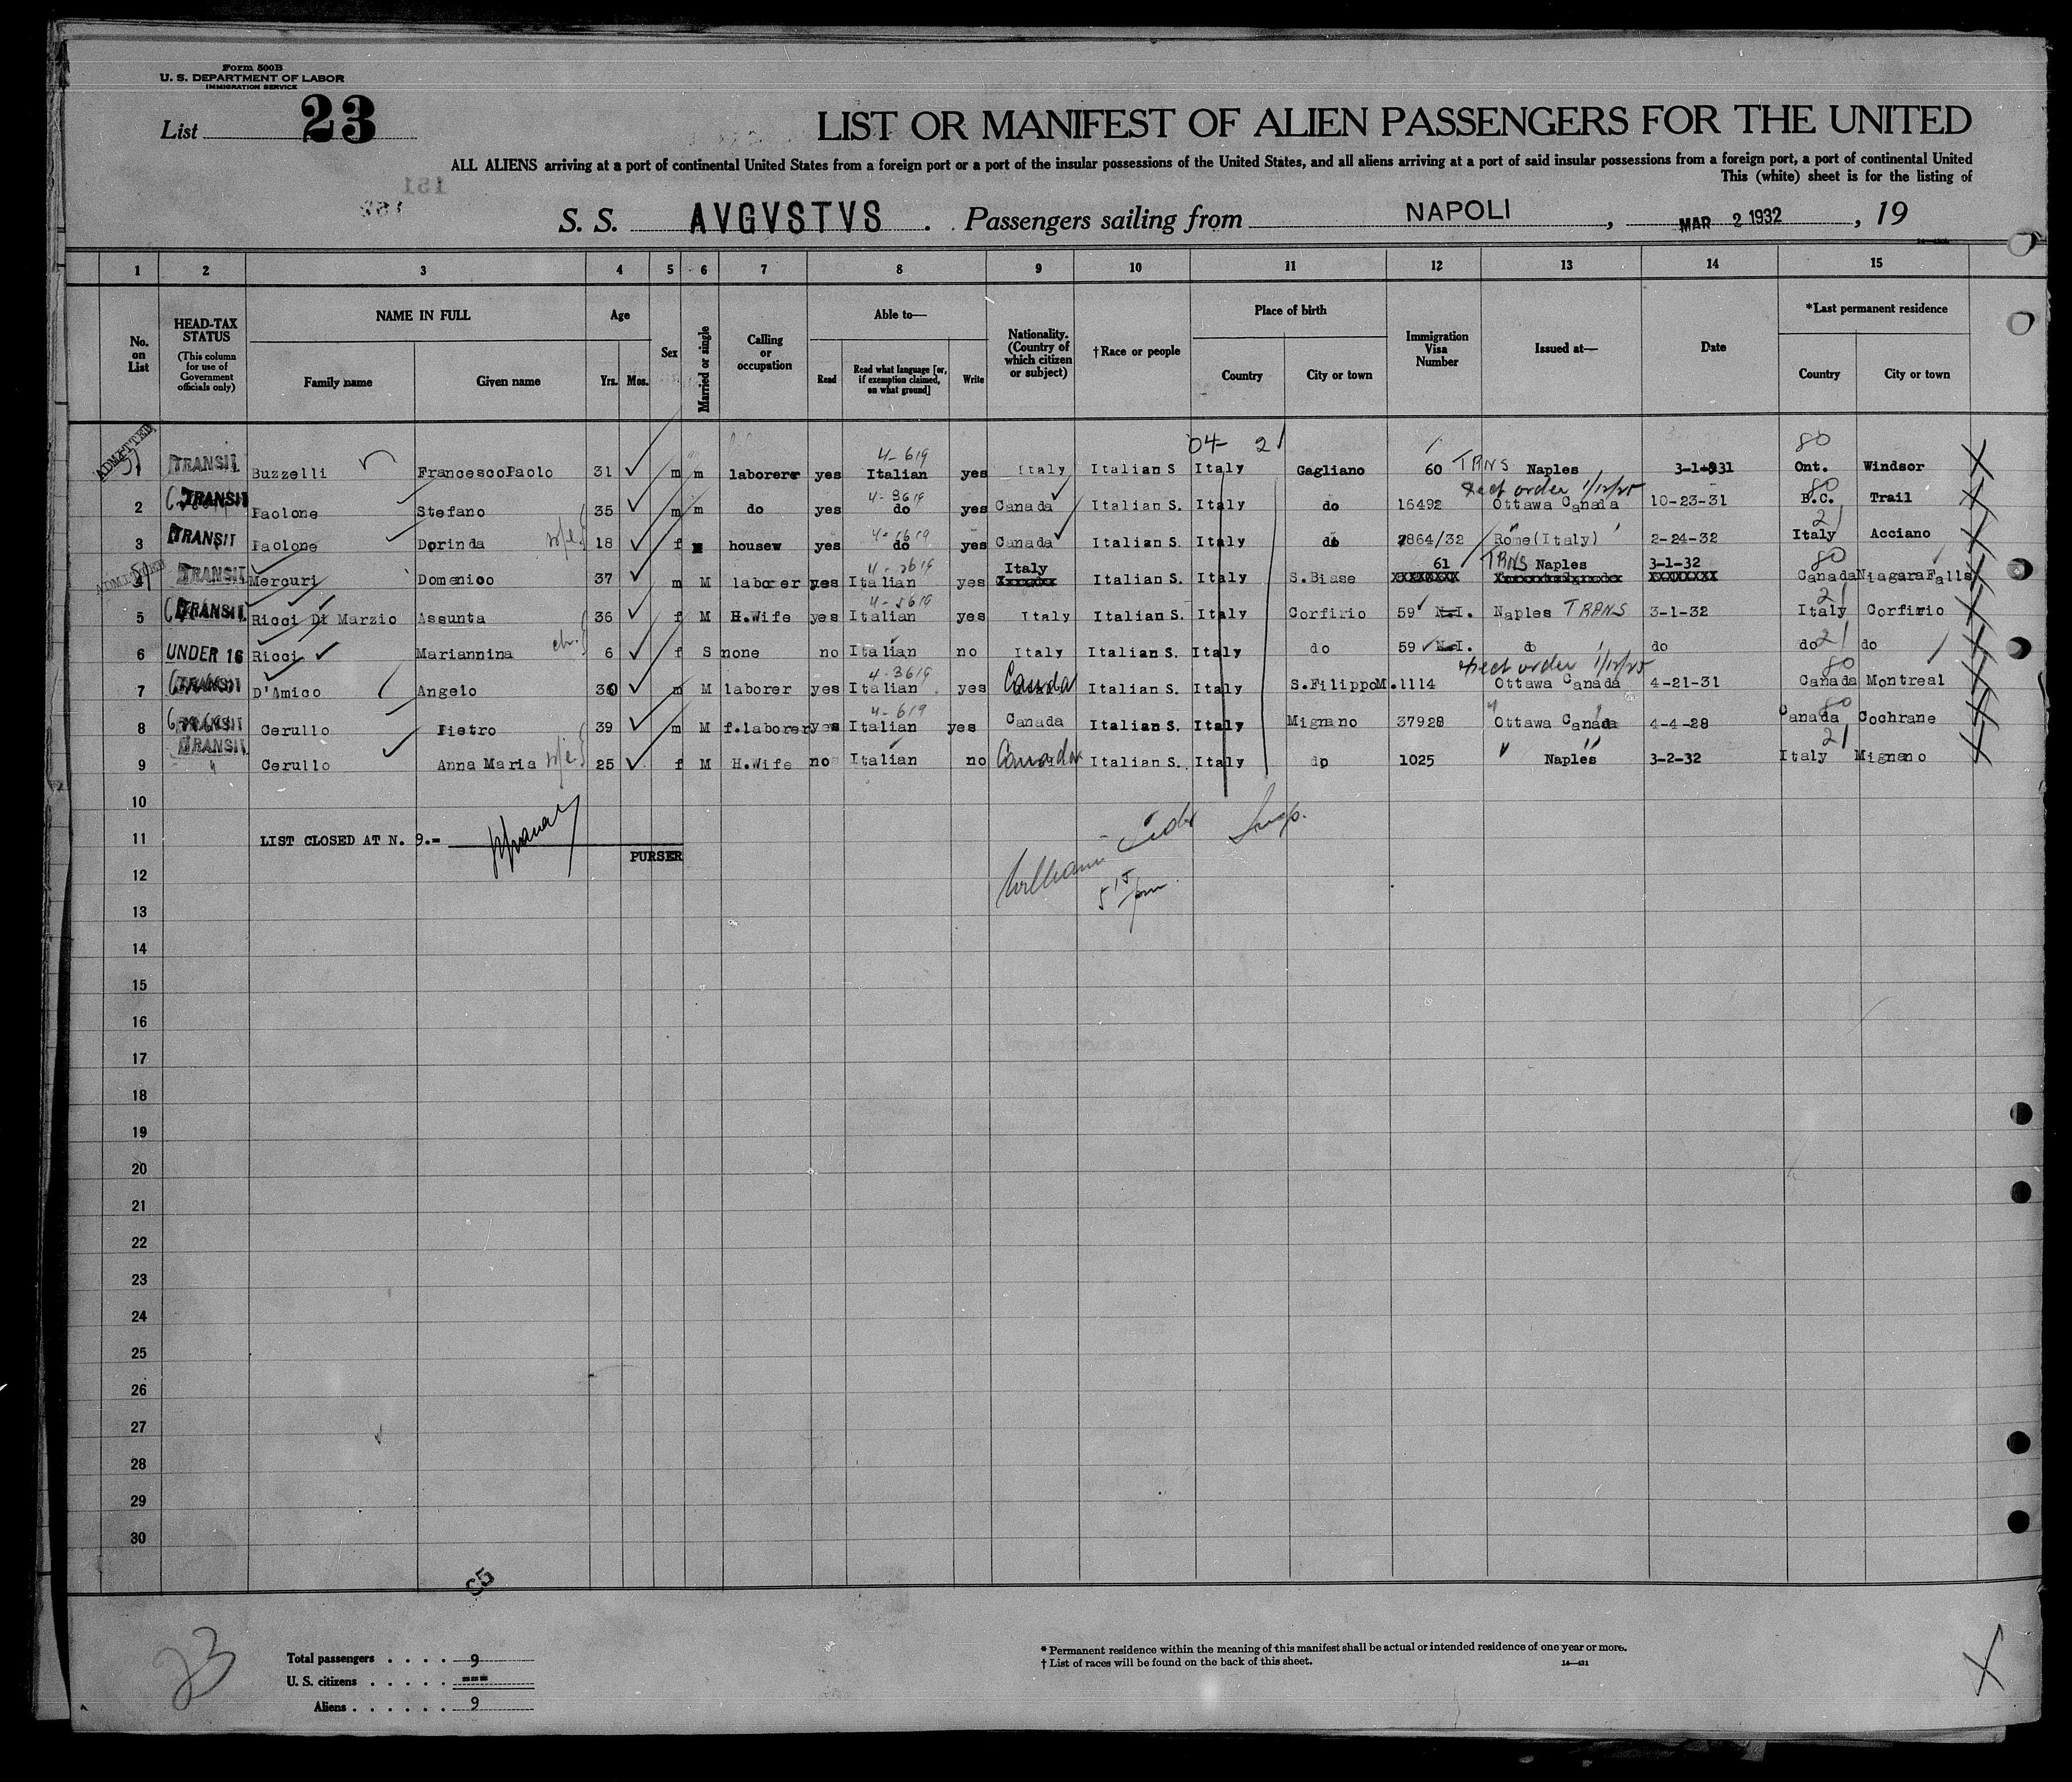 Form 500B
U. S. DEPARTMENT OF LABOR
IMMIGRATION SERVICE
List 23
LIST OR MANIFEST OF ALIEN PASSENGERS FOR THE UNITED
ALL ALIENS arriving at a port of continental United States from a foreign port or a port of the insular possessions of the United States, and all aliens arriving at a port of said insular possessions from a foreign port, a port of continental United
This (white) sheet is for the listing of
151
S. S. AVGVSTVS . Passengers sailing from NAPOLI , MAR 2 1932 , 19
1 2 3 4 5 6 7 8 9 10 11 12 13 14 15
No. on List
HEAD-TAX STATUS (This column for use of Government officials only)
NAME IN FULL Family name Given name
Age Yrs. Mos.
Sex
Married or single
Calling or occupation
Able to— Read Read what language [or, if exemption claimed, on what ground] Write
Nationality. (Country of which citizen or subject)
†Race or people
Place of birth Country City or town
Immigration Visa Number
Issued at—
Date
*Last permanent residence Country City or town
04- 21 80
ADMITTED TRANSIT Buzzelli FrancescoPaolo 31 m m laborerr yes 4-619 Italian yes Italy Italian S Italy Gagliano 60 TRNS Naples 3-1-931 Ont. Windsor
2 TRANSIT Paolone Stefano 35 m m do yes 4-3619 do yes Canada Italian S. Italy do 16492 Ottawa Canada 10-23-31 80 B.C. Trail
3 TRANSIT Paolone Dorinda 18 f housew yes do yes Canada Italian S. Italy do 7864/32 Rome(Italy) 2-24-32 21 Italy Acciano
ADMITTED 4 TRANSIT Mercuri Domenico 37 m M laborer yes Italian yes Italy Italian S. Italy S.Biase 61 TRNS Naples 3-1-32 80 Canada Niagara Falls
5 TRANSIT Ricci Di Marzio Assunta 36 f M H.Wife yes Italian yes Italy Italian S. Italy Corfirio 59 N.I. Naples TRANS 3-1-32 21 Italy Corfinio
6 UNDER 16 Ricci Mariannina ch. 6 f S none no Italian no Italy Italian S. Italy do 59 N.I. do do do 21 do
7 TRANSIT D'Amico Angelo 30 m M laborer yes 4-3619 Italian yes Canada Italian S. Italy S.FilippoM. 1114 order 1/12/25 Ottawa Canada 4-21-31 80 Canada Montreal
8 TRANSIT Cerullo Pietro 39 m M f.laborer yes 4-619 Italian yes Canada Italian S. Italy Mignano 37928 Ottawa Canada 4-4-28 80 Canada Cochrane
9 TRANSIT Cerullo Anna Maria 25 f M H.Wife no Italian no Canada Italian S. Italy do 1025 Naples 3-2-32 21 Italy Mignano
10
11 LIST CLOSED AT N. 9.-
PURSER
12
William Insp.
5 15 pm
13
14
15
16
17
18
19
20
21
22
23
24
25
26
27
28
29
30
C5
23
Total passengers . . . . 9
U. S. citizens . . . . . ===
Aliens . . . . . . 9
* Permanent residence within the meaning of this manifest shall be actual or intended residence of one year or more.
† List of races will be found on the back of this sheet.